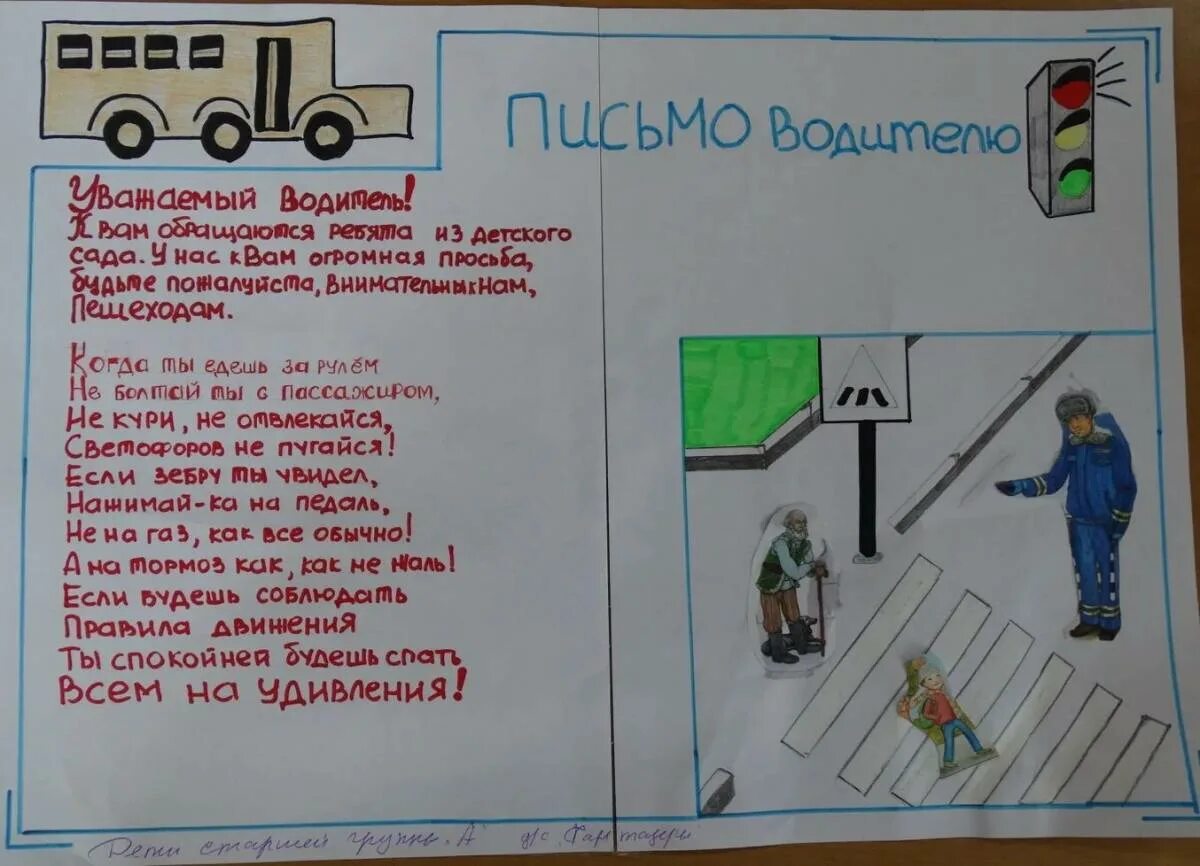 Письмо водителю
Уважаемый водитель!
К вам обращаются ребята из детского
сада. У нас к Вам огромная просьба,
будьте пожалуйста, внимательны к нам,
Пешеходам.
Когда ты едешь за рулём
Не болтай ты с пассажиром,
Не кури, не отвлекайся,
Светофоров не пугайся!
Если зебру ты увидел,
Нажимай-ка на педаль,
Не на газ, как все обычно!
А на тормоз как, как не жаль!
Если будешь соблюдать
Правила движения
Ты спокойней будешь спать
Всем на удивления!
Дети старшей группы "А" д/с